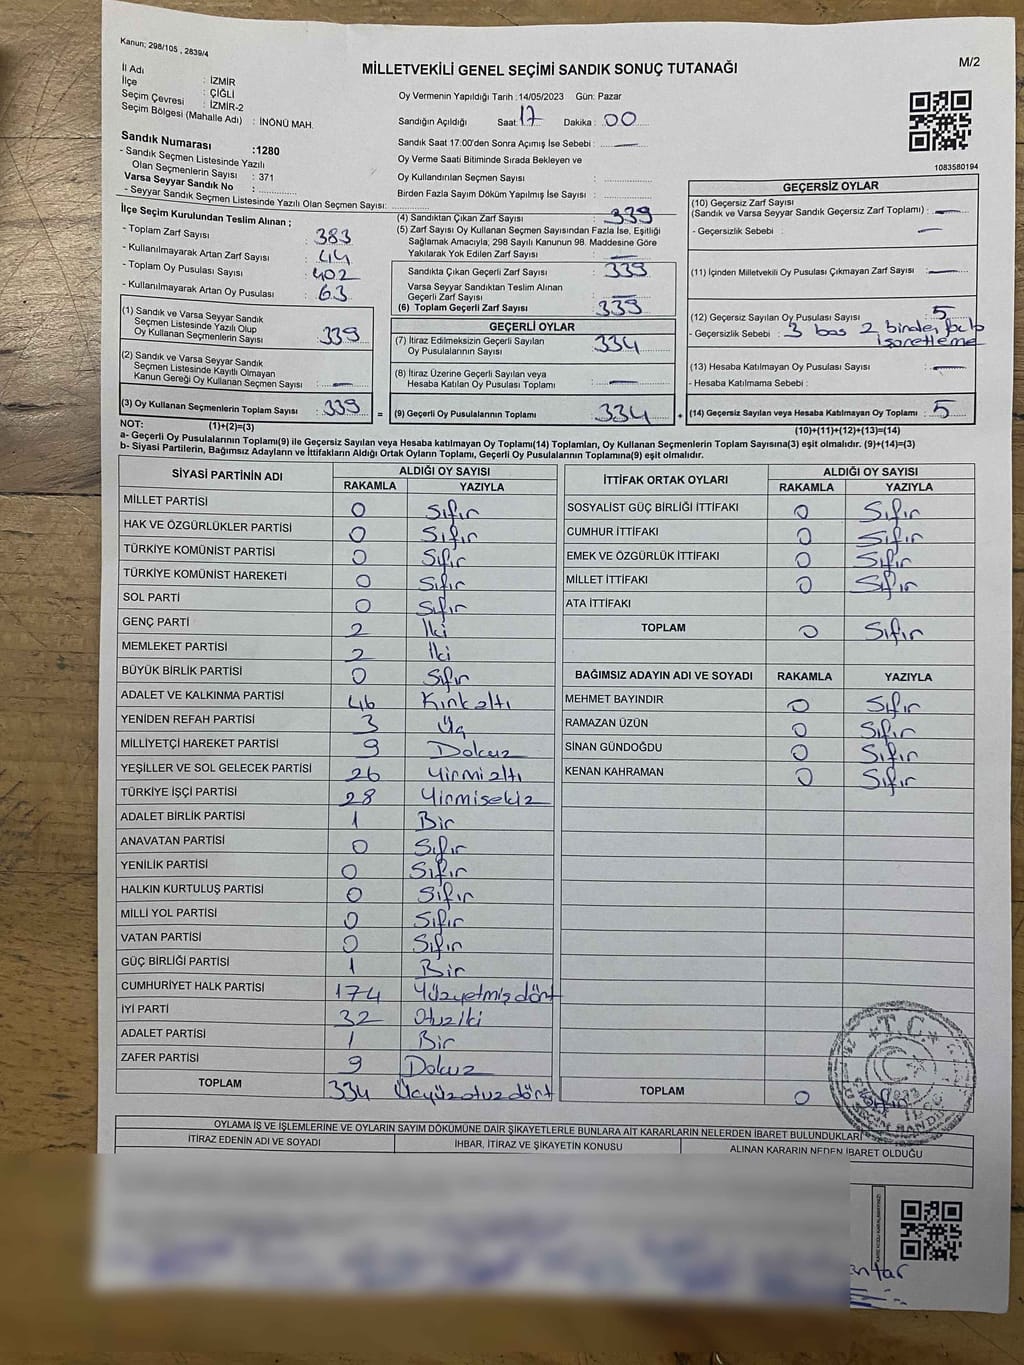 Kanun; 298/105 , 2839/4
M/2
MİLLETVEKİLİ GENEL SEÇİMİ SANDIK SONUÇ TUTANAĞI
İl Adı : İZMİR
İlçe : ÇİĞLİ
Seçim Çevresi : İZMİR-2
Seçim Bölgesi (Mahalle Adı) : İNÖNÜ MAH.
Sandık Numarası :1280
- Sandık Seçmen Listesinde Yazılı
Olan Seçmenlerin Sayısı : 371
Varsa Seyyar Sandık No :
- Seyyar Sandık Seçmen Listesinde Yazılı Olan Seçmen Sayısı:
Oy Vermenin Yapıldığı Tarih :14/05/2023 Gün: Pazar
Sandığın Açıldığı Saat: 17 Dakika : 00
Sandık Saat 17:00'den Sonra Açımış İse Sebebi : —
Oy Verme Saati Bitiminde Sırada Bekleyen ve
Oy Kullandırılan Seçmen Sayısı :
Birden Fazla Sayım Döküm Yapılmış İse Sayısı :
1083580194
İlçe Seçim Kurulundan Teslim Alınan ;
- Toplam Zarf Sayısı : 383
- Kullanılmayarak Artan Zarf Sayısı : 44
- Toplam Oy Pusulası Sayısı : 402
- Kullanılmayarak Artan Oy Pusulası : 63
(1) Sandık ve Varsa Seyyar Sandık
Seçmen Listesinde Yazılı Olup
Oy Kullanan Seçmenlerin Sayısı : 339
(2) Sandık ve Varsa Seyyar Sandık
Seçmen Listesinde Kayıtlı Olmayan
Kanun Gereği Oy Kullanan Seçmen Sayısı : —
(3) Oy Kullanan Seçmenlerin Toplam Sayısı : 339 =
(4) Sandıktan Çıkan Zarf Sayısı : 339
(5) Zarf Sayısı Oy Kullanan Seçmen Sayısından Fazla İse, Eşitliği
Sağlamak Amacıyla, 298 Sayılı Kanunun 98. Maddesine Göre
Yakılarak Yok Edilen Zarf Sayısı : —
Sandıkta Çıkan Geçerli Zarf Sayısı : 339
Varsa Seyyar Sandıktan Teslim Alınan
Geçerli Zarf Sayısı : —
(6) Toplam Geçerli Zarf Sayısı : 339
GEÇERLİ OYLAR
(7) İtiraz Edilmeksizin Geçerli Sayılan
Oy Pusulalarının Sayısı : 334
(8) İtiraz Üzerine Geçerli Sayılan veya
Hesaba Katılan Oy Pusulası Toplamı : —
(9) Geçerli Oy Pusulalarının Toplamı : 334 +
GEÇERSİZ OYLAR
(10) Geçersiz Zarf Sayısı
(Sandık ve Varsa Seyyar Sandık Geçersiz Zarf Toplamı) : —
- Geçersizlik Sebebi : —
(11) İçinden Milletvekili Oy Pusulası Çıkmayan Zarf Sayısı : —
(12) Geçersiz Sayılan Oy Pusulası Sayısı : 5
- Geçersizlik Sebebi : 3 bos 2 birden fazla
isaretleme
(13) Hesaba Katılmayan Oy Pusulası Sayısı : —
- Hesaba Katılmama Sebebi :
(14) Geçersiz Sayılan veya Hesaba Katılmayan Oy Toplamı : 5
NOT: (1)+(2)=(3)
(10)+(11)+(12)+(13)=(14)
a- Geçerli Oy Pusulalarının Toplamı(9) ile Geçersiz Sayılan veya Hesaba katılmayan Oy Toplamı(14) Toplamları, Oy Kullanan Seçmenlerin Toplam Sayısına(3) eşit olmalıdır. (9)+(14)=(3)
b- Siyasi Partilerin, Bağımsız Adayların ve İttifakların Aldığı Ortak Oyların Toplamı, Geçerli Oy Pusulalarının Toplamına(9) eşit olmalıdır.
SİYASİ PARTİNİN ADI ALDIĞI OY SAYISI
RAKAMLA YAZIYLA
MİLLET PARTİSİ 0 Sıfır
HAK VE ÖZGÜRLÜKLER PARTİSİ 0 Sıfır
TÜRKİYE KOMÜNİST PARTİSİ 0 Sıfır
TÜRKİYE KOMÜNİST HAREKETİ 0 Sıfır
SOL PARTİ 0 Sıfır
GENÇ PARTİ 2 İki
MEMLEKET PARTİSİ 2 İki
BÜYÜK BİRLİK PARTİSİ 0 Sıfır
ADALET VE KALKINMA PARTİSİ 46 Kırkaltı
YENİDEN REFAH PARTİSİ 3 Üç
MİLLİYETÇİ HAREKET PARTİSİ 9 Dokuz
YEŞİLLER VE SOL GELECEK PARTİSİ 26 Yirmialtı
TÜRKİYE İŞÇİ PARTİSİ 28 Yirmisekiz
ADALET BİRLİK PARTİSİ 1 Bir
ANAVATAN PARTİSİ 0 Sıfır
YENİLİK PARTİSİ 0 Sıfır
HALKIN KURTULUŞ PARTİSİ 0 Sıfır
MİLLİ YOL PARTİSİ 0 Sıfır
VATAN PARTİSİ 0 Sıfır
GÜÇ BİRLİĞİ PARTİSİ 1 Bir
CUMHURİYET HALK PARTİSİ 174 Yüzyetmişdört
İYİ PARTİ 32 Otuziki
ADALET PARTİSİ 1 Bir
ZAFER PARTİSİ 9 Dokuz
TOPLAM 334 Üçyüzotuzdört
İTTİFAK ORTAK OYLARI ALDIĞI OY SAYISI
RAKAMLA YAZIYLA
SOSYALİST GÜÇ BİRLİĞİ İTTİFAKI 0 Sıfır
CUMHUR İTTİFAKI 0 Sıfır
EMEK VE ÖZGÜRLÜK İTTİFAKI 0 Sıfır
MİLLET İTTİFAKI 0 Sıfır
ATA İTTİFAKI
TOPLAM 0 Sıfır
BAĞIMSIZ ADAYIN ADI VE SOYADI RAKAMLA YAZIYLA
MEHMET BAYINDIR 0 Sıfır
RAMAZAN ÜZÜN 0 Sıfır
SİNAN GÜNDOĞDU 0 Sıfır
KENAN KAHRAMAN 0 Sıfır
T.C.
TOPLAM 0 Sıfır
OYLAMA İŞ VE İŞLEMLERİNE VE OYLARIN SAYIM DÖKÜMÜNE DAİR ŞİKAYETLERLE BUNLARA AİT KARARLARIN NELERDEN İBARET BULUNDUKLARI
İTİRAZ EDENİN ADI VE SOYADI İHBAR, İTİRAZ VE ŞİKAYETİN KONUSU ALINAN KARARIN NEDEN İBARET OLDUĞU